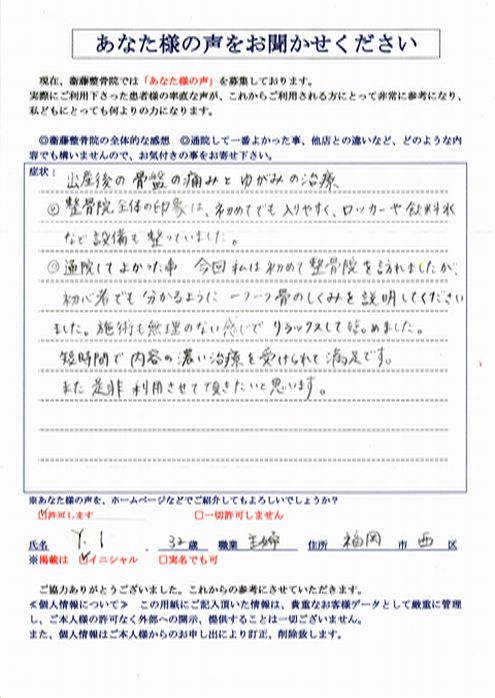 あなた様の声をお聞かせください
現在、衛藤整骨院では「あなた様の声」を募集しております。
実際にご利用下さった患者様の率直な声が、これからご利用される方にとって非常に参考になり、
私どもにとっても何よりの力になります。
◎衛藤整骨院の全体的な感想 ◎通院して一番よかった事、他店との違いなど、どのような内
容でも構いませんので、お気付きの事をお寄せ下さい。
症状: 出産後の骨盤の痛みとゆがみの治療
◎整骨院全体の印象は、初めてでも入りやすく、ロッカーや飲料水
など設備も整っていました。
◎通院してよかった事 今回私は初めて整骨院を訪れましたが、
初心者でも分かるように一つ一つ骨のしくみを説明してください
ました。施術も無理のない感じでリラックスして めました。
短時間で内容の濃い治療を受けられて満足です。
また是非利用させて頂きたいと思います。
※あなた様の声を、ホームページなどでご紹介してもよろしいでしょうか?
☑許可します □一切許可しません
氏名 Y.I 32歳 職業 主婦 住所 福岡 市 西 区
※掲載は ☑イニシャル □実名でも可
ご協力ありがとうございました。これからの参考にさせていただきます。
≪個人情報について≫ この用紙にご記入頂いた情報は、貴重なお客様データとして厳重に管理
し、ご本人様の許可なく外部への開示、提供することは一切ございません。
また、個人情報はご本人様からのお申し出により訂正、削除致します。